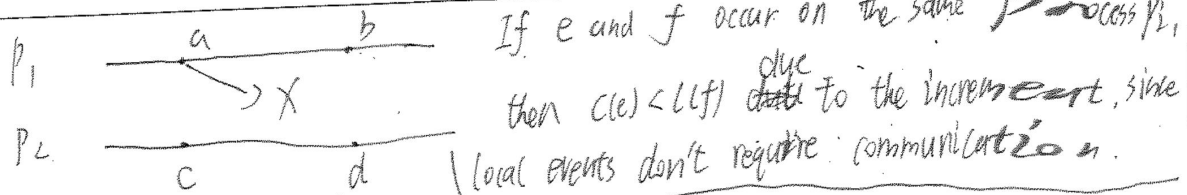 P₁ a b
X
P₂ c d
If e and f occur on the same process P₂,
then C(e) < C(f) due to the increment, since
local events don't require communication.